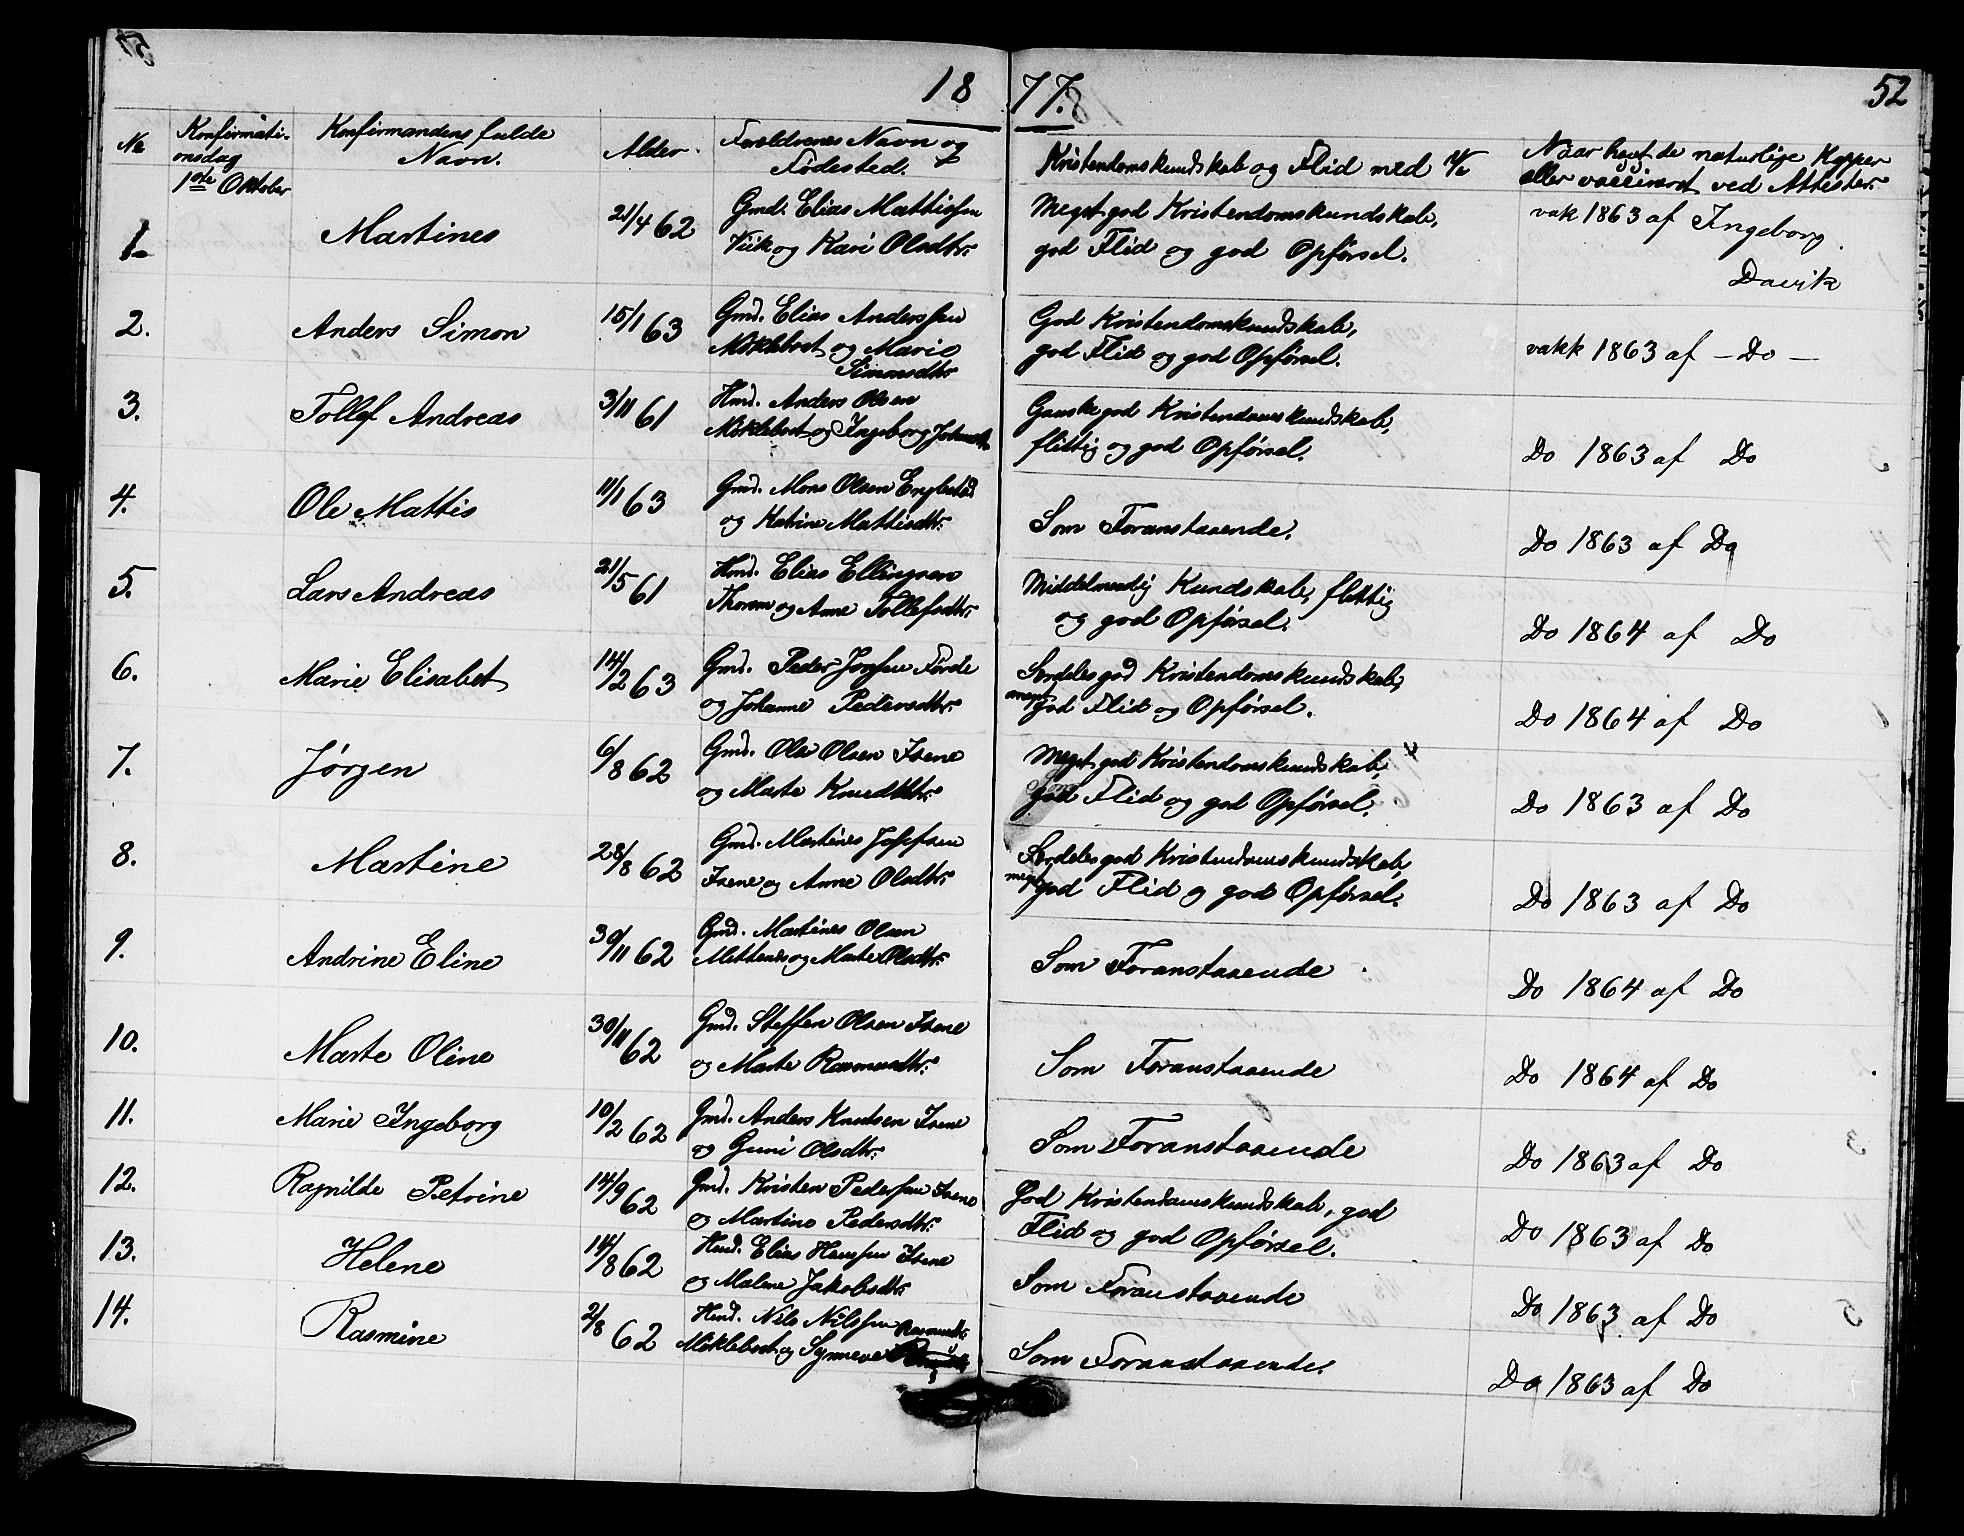 18 77.
52
No
Konfirmati-
onsdag
1ste Oktober
Konfirmandens fulde
Navn.
Alder.
Forældrenes Navn og
Fødested.
Kristendomskundskab og Flid med
Naar havt de naturlige Kopper
eller vaccineret ved Attester.
1.
Martines
21/4 62
Gmd. Elias Mattissen
Viik og Kari Olsdtr.
Meget god Kristendomskundskab,
god Flid og god Opførsel.
vak 1863 af Ingeborg
Davik
2.
Anders Simon
15/1 63
Gmd. Elias Anderssen
Møklebost og Marie
Simonsdtr.
God Kristendomskundskab,
god Flid og god Opførsel.
vakk 1863 af — Do —
3.
Tollef Andreas
3/11 61
Hmd. Anders Olsen
Møklebost og Ingeborg
Ganske god Kristendomskundskab,
flittig og god Opførsel.
Do 1863 af Do
4.
Ole Mattis
11/1 63
Gmd. Mons Olsen
og Katrine Mattisdtr.
Som Foranstaaende.
Do 1863 af Do
5.
Lars Andreas
21/5 61
Hmd. Elias Ellingsen
og Anne Tollefsdtr.
Middelmaadig Kundskab, flittig
og god Opførsel.
Do 1864 af Do
6.
Marie Elisabet
14/2 63
Gmd. PederFørde
og Johanne Pedersdtr.
Særdeles god Kristendomskundskab,
meget god Flid og Opførsel.
Do 1864 af Do
7.
Jørgen
6/8 62
Gmd. Ole Olsen Isene
og Marte Knudsdtr.
Meget god Kristendomskundskab,
god Flid og god Opførsel.
Do 1863 af Do
8.
Martine
28/8 62
Gmd. Martines
Isene og Anne Olsdtr.
Særdeles god Kristendomskundskab,
meget god Flid og god Opførsel.
Do 1863 af Do
9.
Andrine Eline
30/11 62
Gmd. Martines Olsen
og Marte Olsdtr.
Som Foranstaaende
Do 1864 af Do
10.
Marte Oline
30/11 62
Gmd. Steffen Olsen Isene
og Marte Rasmusdtr.
Som Foranstaaende
Do 1864 af Do
11.
Marie Ingeborg
10/2 62
Gmd. Anders Knutsen Isene
og Guni Olsdtr.
Som Foranstaaende
Do 1863 af Do
12.
Ragnilde Petrine
14/9 62
Gmd. Kristen Pedersen Isene
og Martine Pedersdtr.
God Kristendomskundskab, god
Flid og god Opførsel.
Do 1863 af Do
13.
Helene
14/8 62
Hmd. Elias Hanssen Isene
og Malene Jakobsdtr.
Som Foranstaaende
Do 1863 af Do
14.
Rasmine
2/8 62
Hmd. Nils Nilssen Rasmusdtr.
Møklebost og Synneve
Som Foranstaaende.
Do 1863 af Do